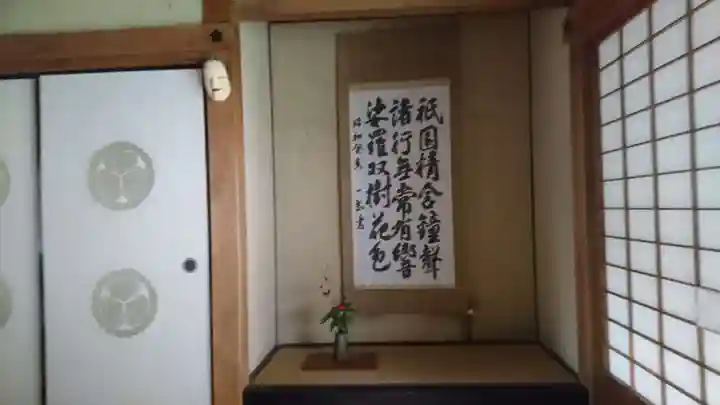 祇園精舎鐘聲
諸行無常有響
娑羅双樹花色
昭和癸亥 一志書